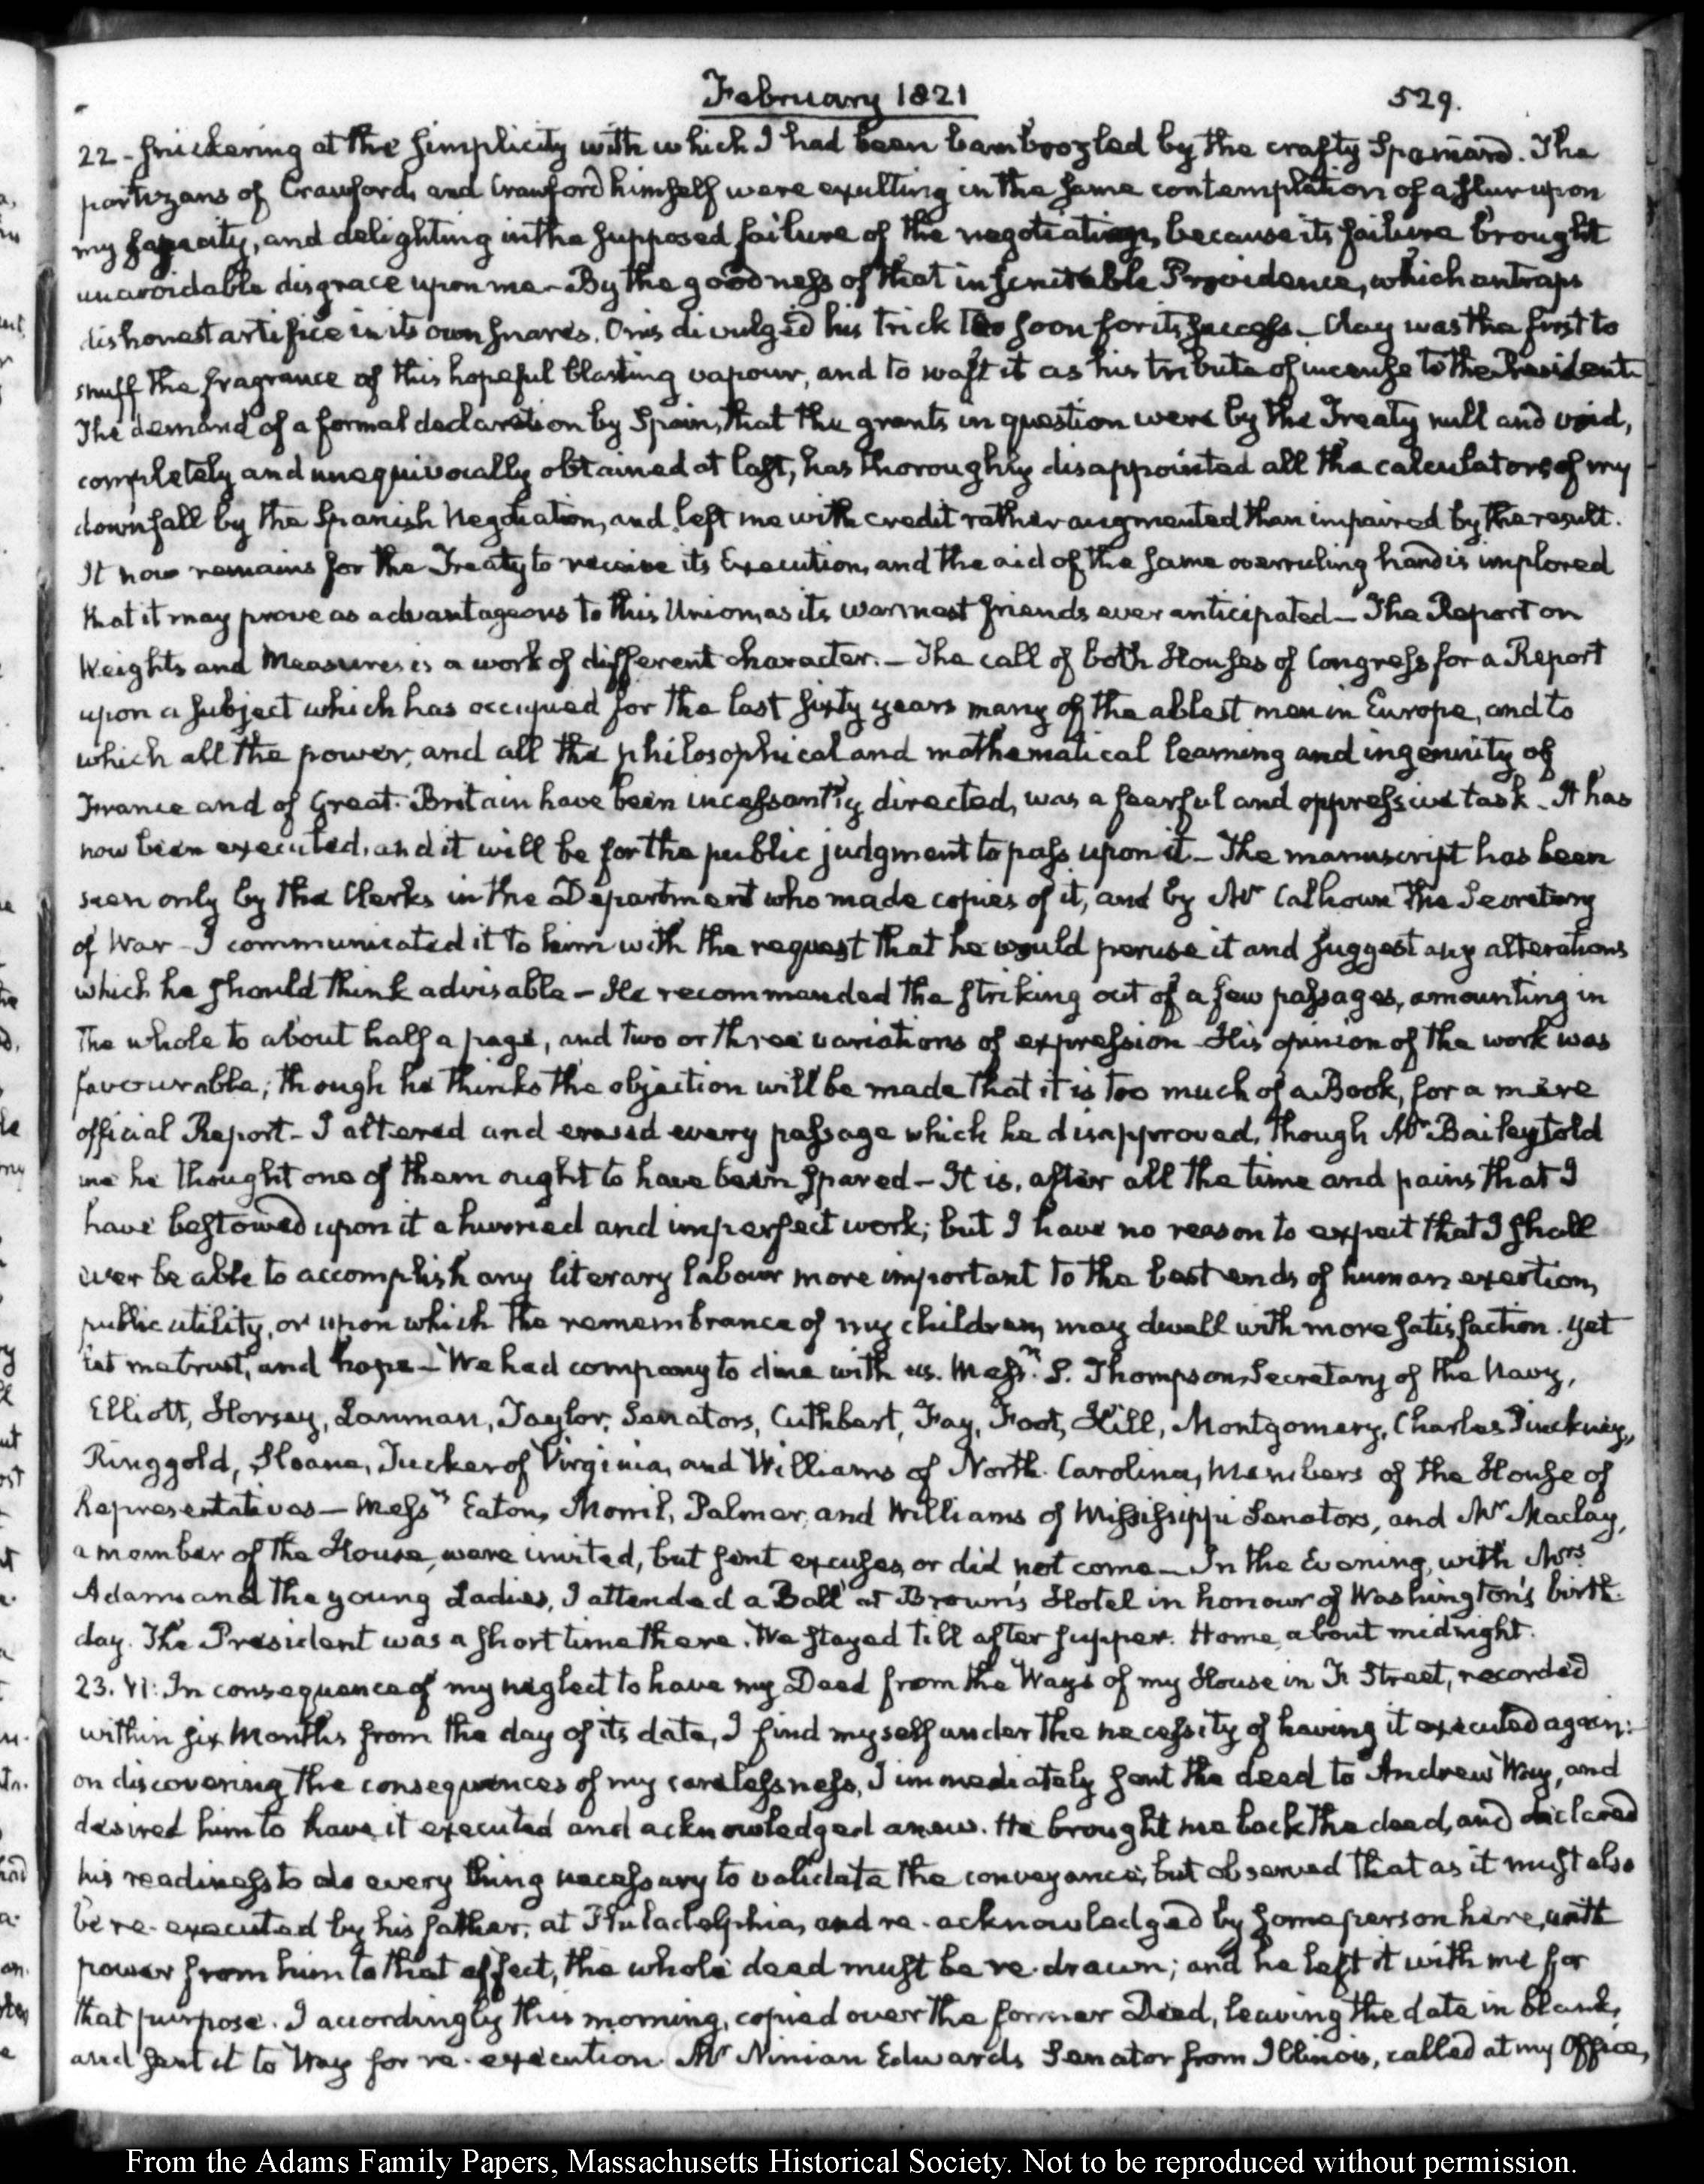 February 1821
529.
22 - snickering at the simplicity with which I had been bamboozled by the crafty Spaniard. The
partizans of Crawford, and Crawford himself were exulting in the same contemplation of a slur upon
my sagacity, and delighting in the supposed failure of the negotiation, because its failure brought
unavoidable disgrace upon me - By the goodness of that inscrutable Providence, which entraps
dishonest artifice in its own snares. Onis divulged his trick too soon for its success - Clay was the first to
snuff the fragrance of this hopeful blasting vapour, and to waft it as his tribute of incense to the President.
The demand of a formal declaration by Spain, that the grants in question were by the Treaty null and void,
completely and unequivocally obtained at last, has thoroughly disappointed all the calculators of my
downfall by the Spanish Negotiation, and left me with credit rather augmented than impaired by the result.
It now remains for the Treaty to receive its Execution, and the aid of the same overruling hand is implored
that it may prove as advantageous to this Union, as its warmest friends ever anticipated - The Report on
Weights and Measures is a work of different character. - The call of both Houses of Congress for a Report
upon a subject which has occupied for the last sixty years many of the ablest men in Europe, and to
which all the power, and all the philosophical and mathematical learning and ingenuity of
France and of Great-Britain have been incessantly directed, was a fearful and oppressive task - It has
now been executed, and it will be for the public judgment to pass upon it - The manuscript has been
seen only by the Clerks in the Department who made copies of it, and by Mr Calhoun the Secretary
of War - I communicated it to him with the request that he would peruse it and suggest any alterations
which he should think advisable - He recommended the striking out of a few passages, amounting in
the whole to about half a page, and two or three variations of expression - His opinion of the work was
favourable; though he thinks the objection will be made that it is too much of a Book, for a mere
official Report - I altered and erased every passage which he disapproved, though Mr Bailey told
me he thought one of them ought to have been spared - It is, after all the time and pains that I
have bestowed upon it a hurried and imperfect work; but I have no reason to expect that I shall
ever be able to accomplish any literary labour more important to the best ends of human exertion,
public utility, or upon which the remembrance of my children, may dwell with more satisfaction. yet
let me trust, and hope - We had company to dine with us. Messrs. S. Thompson, Secretary of the Navy,
Elliott, Horsey, Lanman, Taylor, Senators, Cuthbert, Fay, Foot, Hill, Montgomery, Charles Pinckney,
Ringgold, Sloane, Tucker of Virginia, and Williams of North-Carolina, Members of the House of
Representatives - Messrs Eaton, Morril, Palmer, and Williams of Mississippi Senators, and Mr Maclay,
a member of the House, were invited, but sent excuses, or did not come - In the Evening, with Mrs
Adams and the young Ladies, I attended a Ball at Brown's Hotel in honour of Washington's birth-
day. The President was a short time there. We stayed till after supper. Home, about midnight.
23. VI: In consequence of my neglect to have my Deed from the Ways of my House in F Street, recorded
within six Months from the day of its date, I find myself under the necessity of having it executed again:
on discovering the consequences of my carelessness, I immediately sent the deed to Andrew Way, and
desired him to have it executed and acknowledged anew. He brought me back the deed, and declared
his readiness to do every thing necessary to validate the conveyance; but observed that as it must also
be re-executed by his father, at Philadelphia, and re-acknowledged by some person here, with
power from him to that effect, the whole deed must be re-drawn; and he left it with me for
that purpose. I accordingly this morning, copied over the former Deed, leaving the date in blank,
and sent it to Way for re-execution. Mr Ninian Edwards Senator from Illinois, called at my Office,
From the Adams Family Papers, Massachusetts Historical Society. Not to be reproduced without permission.